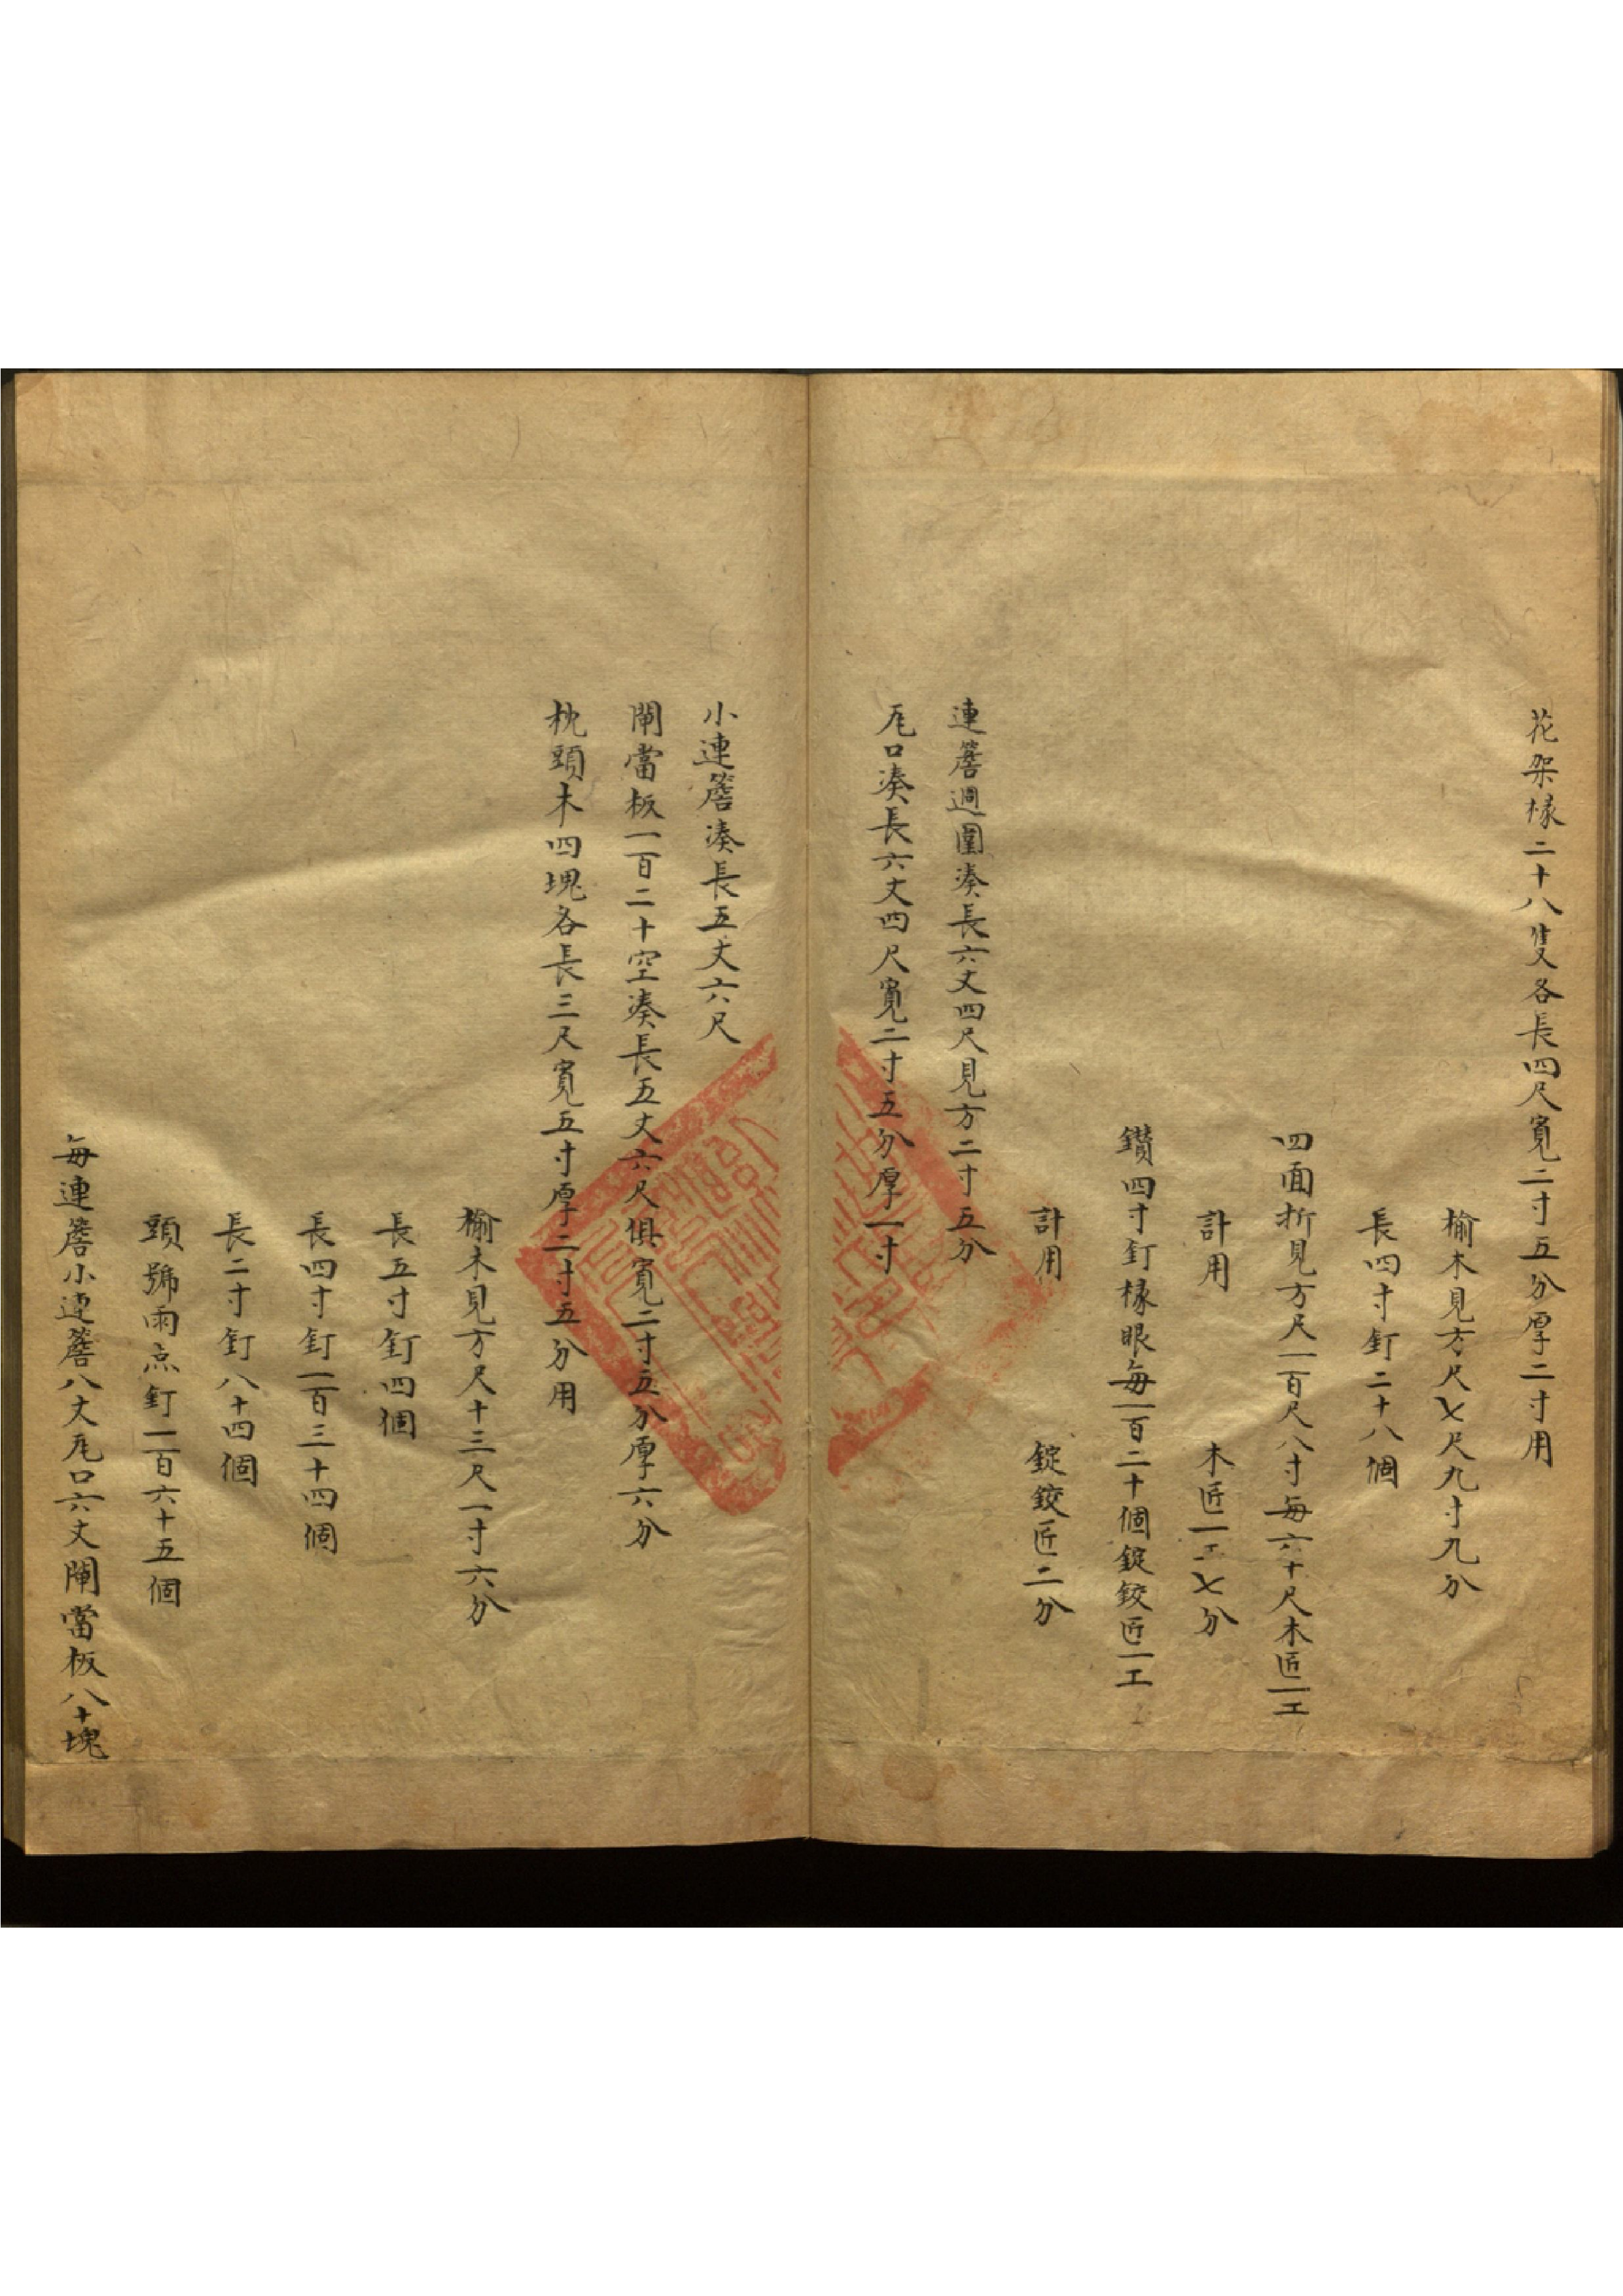 花架椽二十八隻各長四尺寬二寸五分厚二寸用
榆木見方尺七尺九寸九分
長四寸釘二十八個
四面折見方尺一百尺八寸每六十尺木匠一工
計用 木匠一工七分
鑽四寸釘椽眼每一百二十個錠鉸匠一工
計用 錠鉸匠二分
連簷週圍湊長六丈四尺見方二寸五分
瓦口湊長六丈四尺寬二寸五分厚一寸
小連簷湊長五丈六尺
閘當板一百二十空湊長五丈六尺俱寬二寸五分厚六分
枕頭木四塊各長三尺寬五寸厚二寸五分用
榆木見方尺十三尺一寸六分
長五寸釘四個
長四寸釘一百三十四個
長二寸釘八十四個
頭號雨点釘一百六十五個
每連簷小連簷八丈瓦口六丈閘當板八十塊